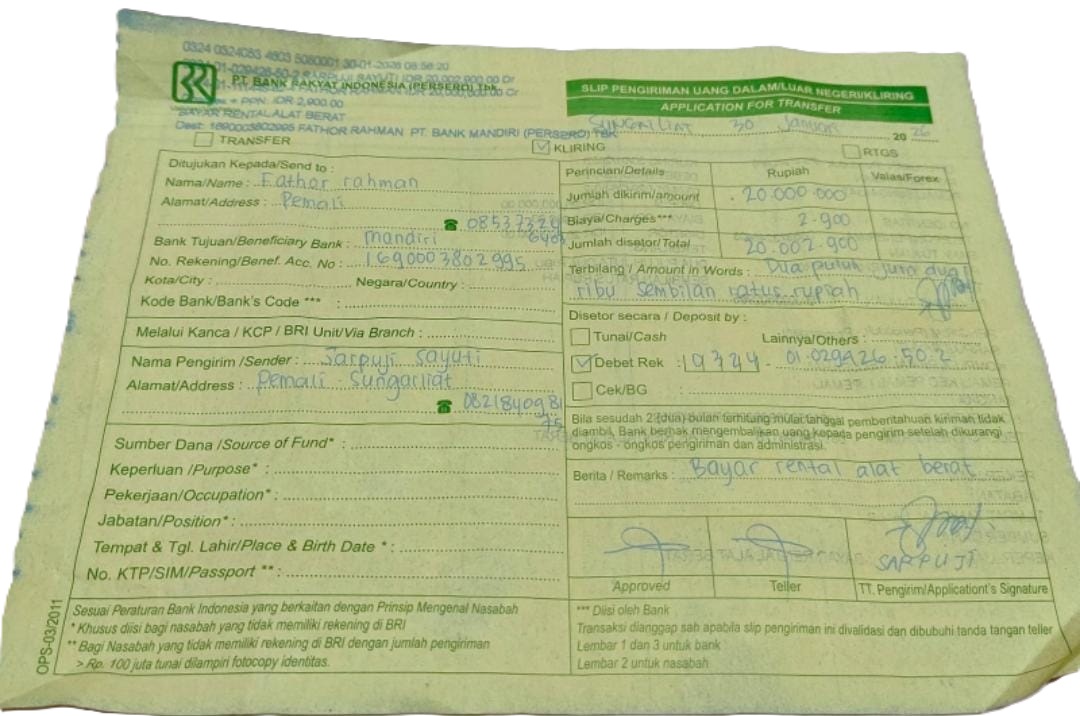 0324 0324083 4803 5080001 30-01-2026 08:56:20
01-029426-50-2 SARPUJI SAYUTI IDR 20,002,900.00 Dr
FATHOR RAHMAN IDR 20,000,000.00 Cr
PT. BANK RAKYAT INDONESIA (PERSERO) Tbk.
+ PPN: IDR 2,900.00
BAYAR RENTAL ALAT BERAT
Dest: 1690003802995 FATHOR RAHMAN PT. BANK MANDIRI (PERSERO) TBK
SLIP PENGIRIMAN UANG DALAM/LUAR NEGERI/KLIRING
APPLICATION FOR TRANSFER
SUNGAILIAT 30 Januari 20 26
TRANSFER
KLIRING
RTGS
Ditujukan Kepada/Send to :
Nama/Name : Fathor rahman
Alamat/Address : Pemali
Bank Tujuan/Beneficiary Bank : mandiri
No. Rekening/Benef. Acc. No : 1690003802995
Kota/City : Negara/Country :
Kode Bank/Bank's Code ***
Melalui Kanca / KCP / BRI Unit/Via Branch :
Nama Pengirim /Sender : Sarpuji sayuti
Alamat/Address : Pemali - Sungailiat
0821840981
75
Sumber Dana /Source of Fund* :
Keperluan /Purpose* :
Pekerjaan/Occupation* :
Jabatan/Position* :
Tempat & Tgl. Lahir/Place & Birth Date * :
No. KTP/SIM/Passport ** :
Perincian/Details Rupiah Valas/Forex
Jumlah dikirim/amount 20.000.000
Biaya/Charges*** 2.900
Jumlah disetor/Total 20.002.900
Terbilang / Amount in Words : Dua puluh juta dua
ribu sembilan ratus rupiah
Disetor secara / Deposit by :
Tunai/Cash Lainnya/Others :
Debet Rek 01.029426.50.2
Cek/BG
Bila sesudah 2 (dua) bulan terhitung mulai tanggal pemberitahuan kiriman tidak
diambil, Bank berhak mengembalikan uang kepada pengirim setelah dikurangi
ongkos - ongkos pengiriman dan administrasi.
Berita / Remarks : Bayar rental alat berat
SARPUJI
Approved Teller TT. Pengirim/Applicationt's Signature
OPS-03/2011
Sesuai Peraturan Bank Indonesia yang berkaitan dengan Prinsip Mengenal Nasabah
* Khusus diisi bagi nasabah yang tidak memiliki rekening di BRI
** Bagi Nasabah yang tidak memiliki rekening di BRI dengan jumlah pengiriman
> Rp. 100 juta tunai dilampiri fotocopy identitas.
*** Diisi oleh Bank
Transaksi dianggap sah apabila slip pengiriman ini divalidasi dan dibubuhi tanda tangan teller
Lembar 1 dan 3 untuk bank
Lembar 2 untuk nasabah